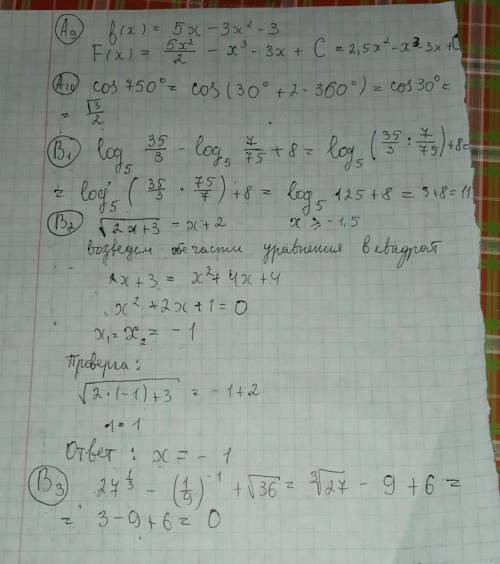 A9 f(x) = 5x - 3x² - 3
F(x) = 5x²/2 - x³ - 3x + C = 2,5x² - x³ - 3x + C
A10 cos 750° = cos(30° + 2·360°) = cos 30° =
= √3/2
B1 log₅ 35/3 - log₅ 7/75 + 8 = log₅ (35/3 : 7/75) + 8 =
= log₅ (35/3 · 75/7) + 8 = log₅ 125 + 8 = 3 + 8 = 11
B2 √(2x+3) = x + 2 x ≥ -1,5
возведем обе части уравнения в квадрат
2x + 3 = x² + 4x + 4
x² + 2x + 1 = 0
x₁ = x₂ = -1
Проверка:
√(2·(-1)+3) = -1 + 2
1 = 1
Ответ: x = -1
B3 27^(1/3) - (1/9)^(-1) + √36 = ∛27 - 9 + 6 =
= 3 - 9 + 6 = 0